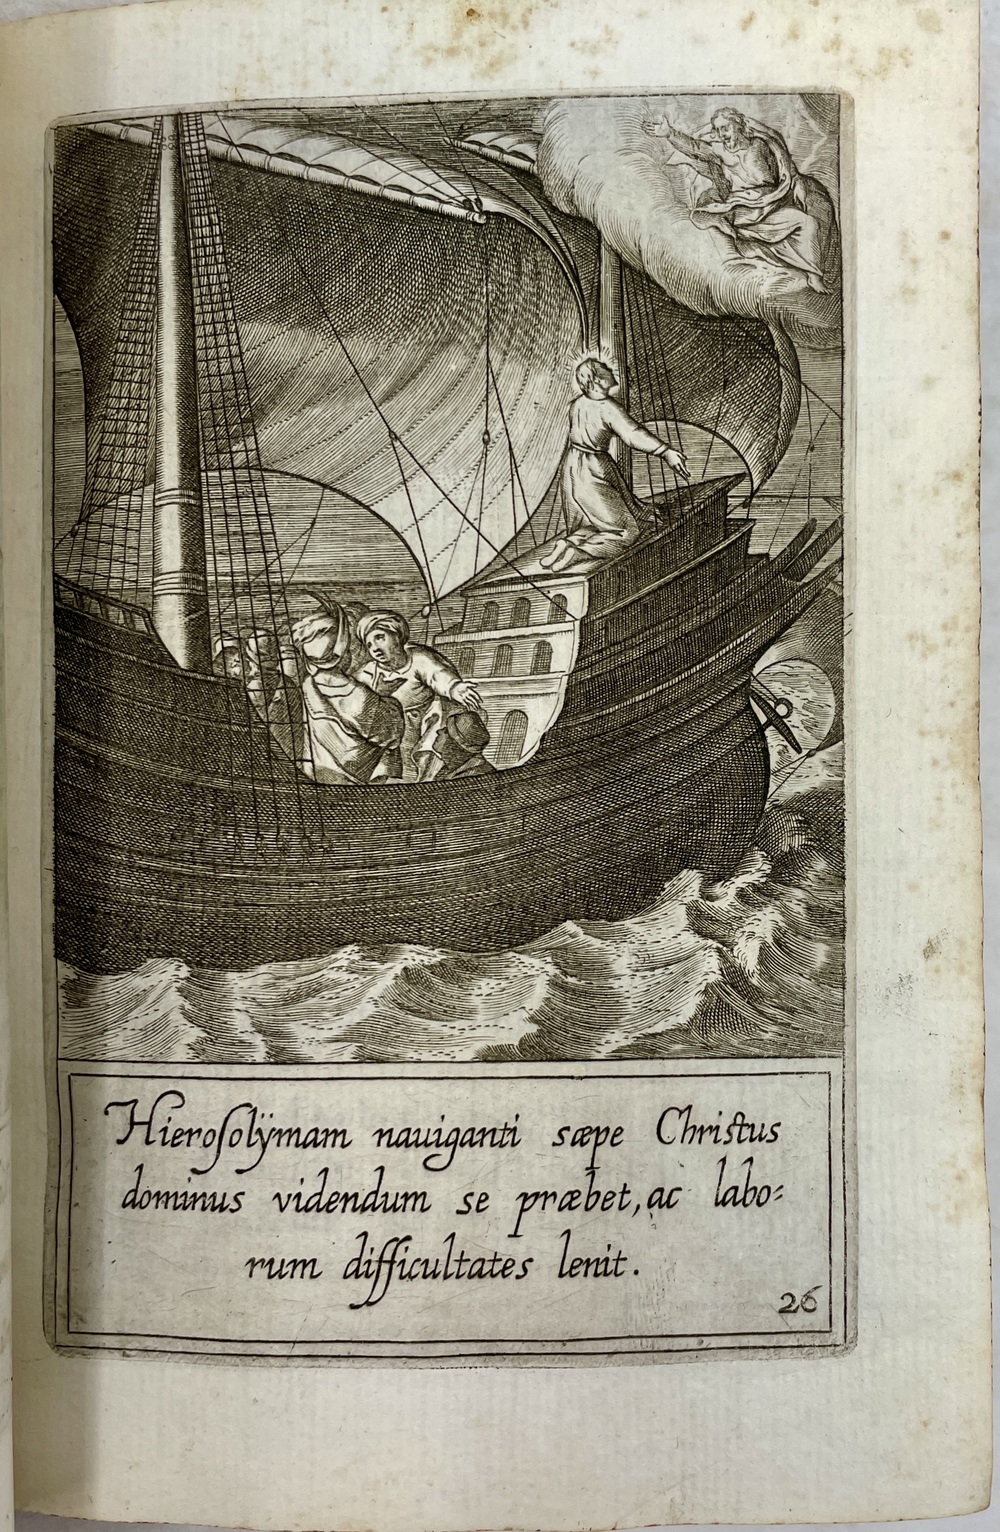 Hieroſolÿmam nauiganti sæpe Chriſtus
dominus videndum se præbet, ac labo⸗
rum difficultates lenit.
26